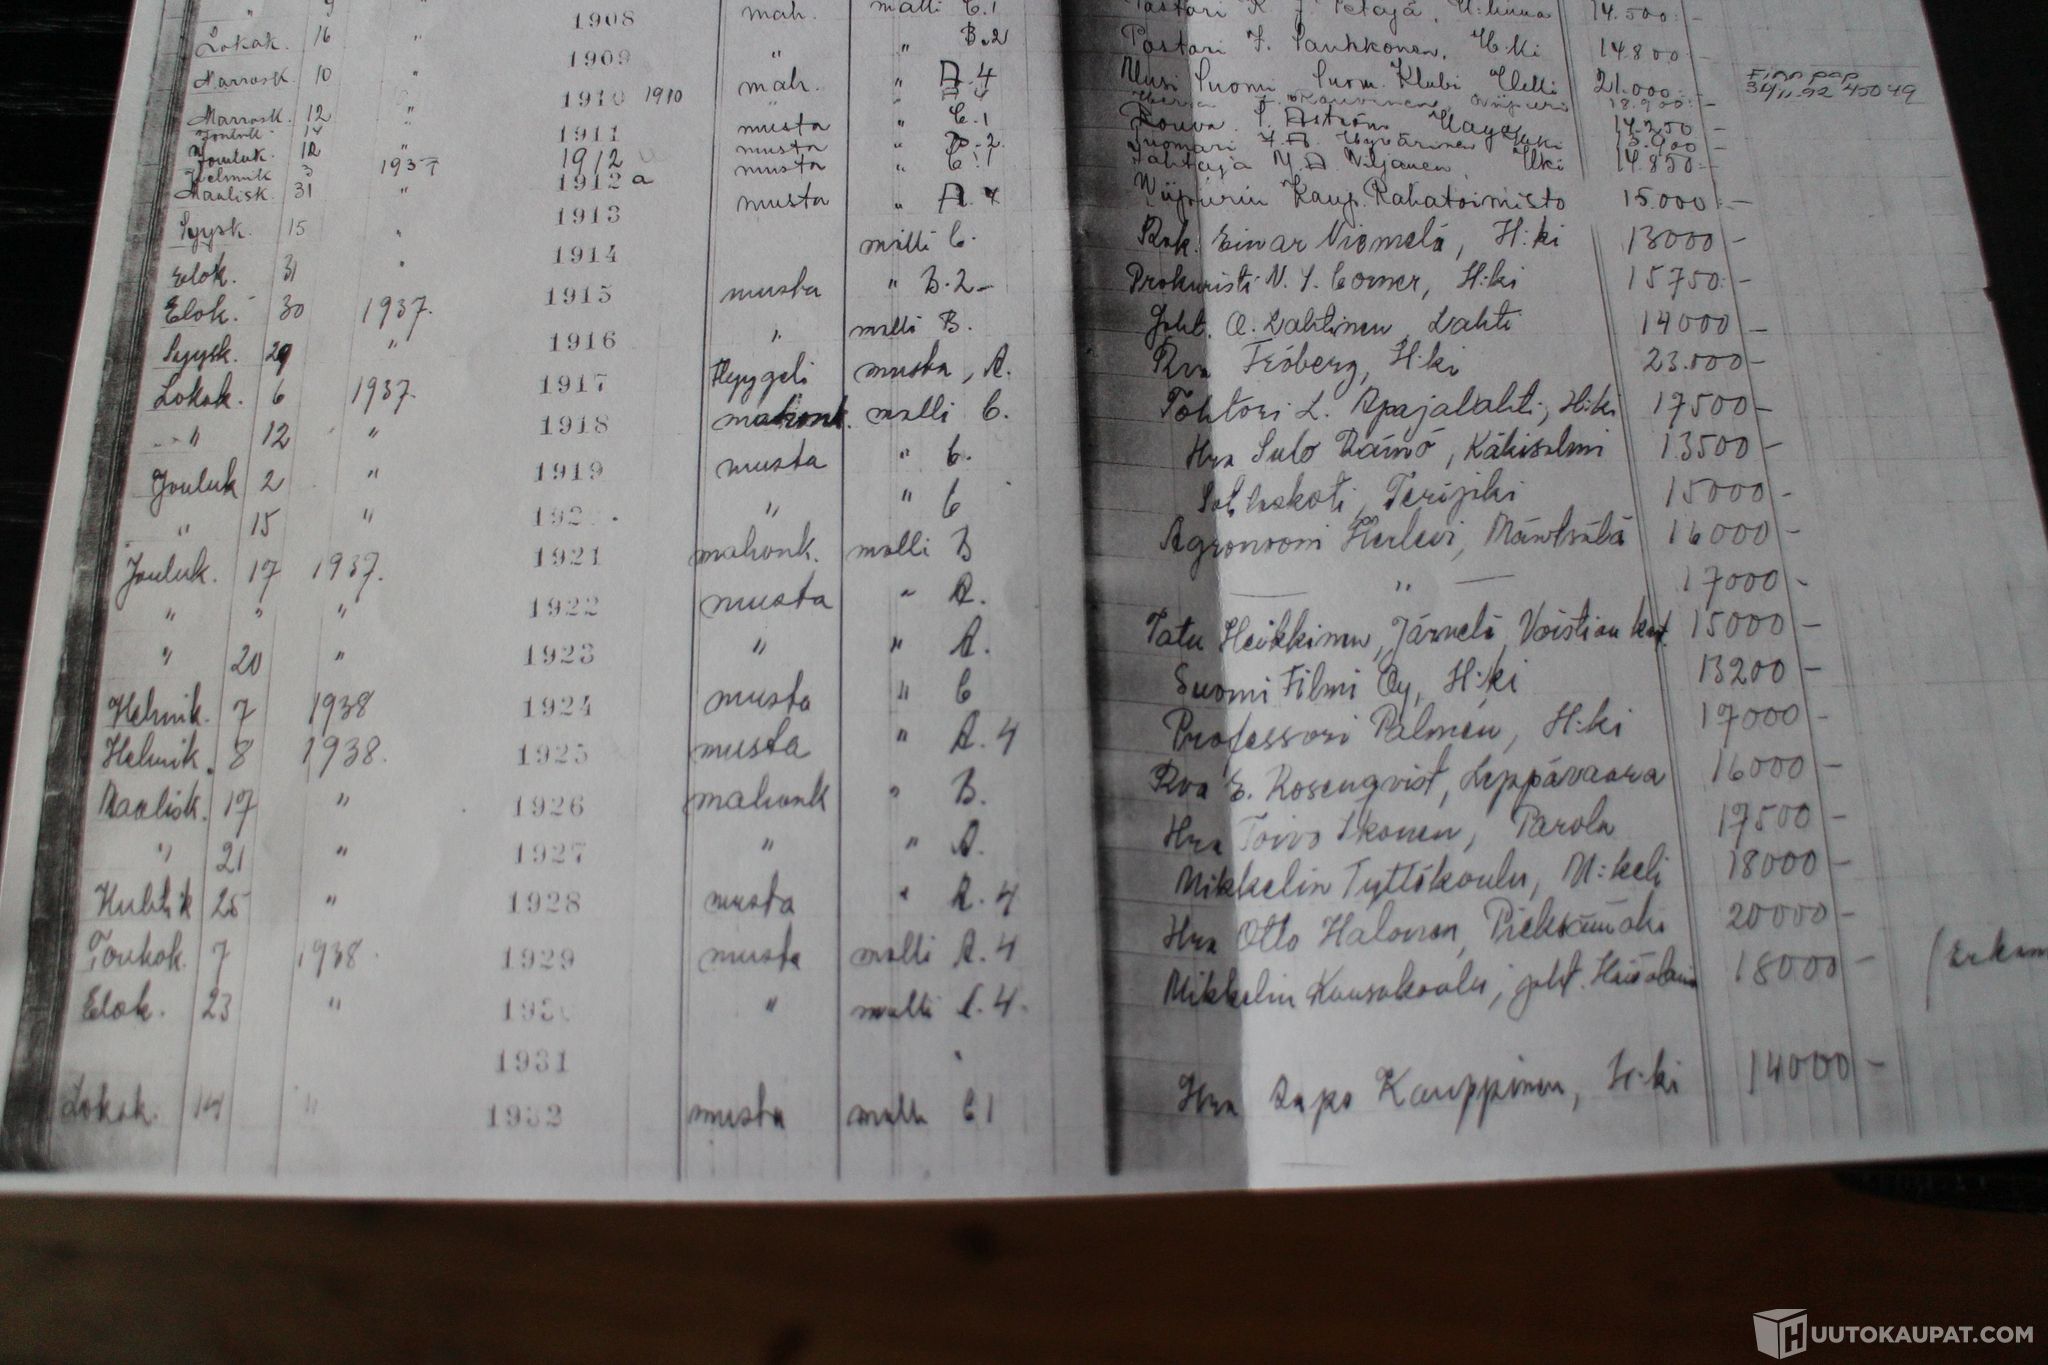 " 9 " 1908 mah. malli C.1 Pastori K. J. Petäjä, 14.500:-
Lokak. 16 " 1909 " " B.2 Pastori J. Sauhkonen, H:ki 14.800:-
Marrask. 10 " 1910 1910 mah. " A.4 Uusi Suomi Suom. Klubi 21.000:- Finn pap
A.4 18.900:- 45049
Marrask. 12 " 1911 musta " C.1 Rouva 14.250-
Jouluk. 14 " 1912 musta " B.2 Tuomari Hyvärinen 13.900-
Jouluk. 12 1912a musta " C.1 Johtaja Y. A. Viljanen, Hki 14.850:-
Helmik 3 1937
Maalisk. 31 " 1913 musta " A.4 Wiipurin Kaup. Rahatoimisto 15.000:-
Syysk. 15 " 1914 malli C. Rak. Einar Niemelä, H:ki 13000-
Elok. 31 " 1915 musta " B.2- Prokuristi N. Corner, H:ki 15750:-
Elok. 30 1937. 1916 " malli B. Joht. O. Lahtinen, Lahti 14000-
Syysk. 29 " 1917 Flyygeli musta, A. Rva Fröberg, H:ki 23.000-
Lokak. 6 1937. 1918 mahonk. malli C. Tohtori L. Apajalahti, H:ki 17500-
" 12 " 1919 musta " C. Hra Sulo Rämö, Käkisalmi 13500-
Jouluk 2 " 192 . " " C Sotilaskoti, Terijoki 15000-
" 15 " 1921 mahonk. malli B Agronoomi Herlevi, Mäntsälä 16000-
Jouluk. 17 1937. 1922 musta " A. — " — 17000-
" " " 1923 " " A. Tatu Heikkinen, Järvelä, 15000-
" 20 " 1924 musta " C Suomi Filmi Oy, H:ki 13200-
Helmik. 7 1938 1925 musta " A.4 Professori Palmén, H:ki 17000-
Helmik. 8 1938. 1926 mahonk " B. Rva E. Rosenqvist, Leppävaara 16000-
Maalisk. 17 " 1927 " " A. Hra Toivo Ikonen, Parola 17500-
" 21 " 1928 musta " A.4 Mikkelin Tyttökoulu, M:keli 18000-
Huhtik 25 " 1929 musta malli A.4 Hra Otto Halonen, Pieksämäki 20000-
Toukok. 7 1938. 193 " malli C.4. Mikkelin Kansakoulu, joht. 18000-
Elok. 23 " 1931
Lokak. 14 " 1932 musta malli C1 Hra Aapo Kauppinen, H:ki 14000-
HUUTOKAUPAT.COM